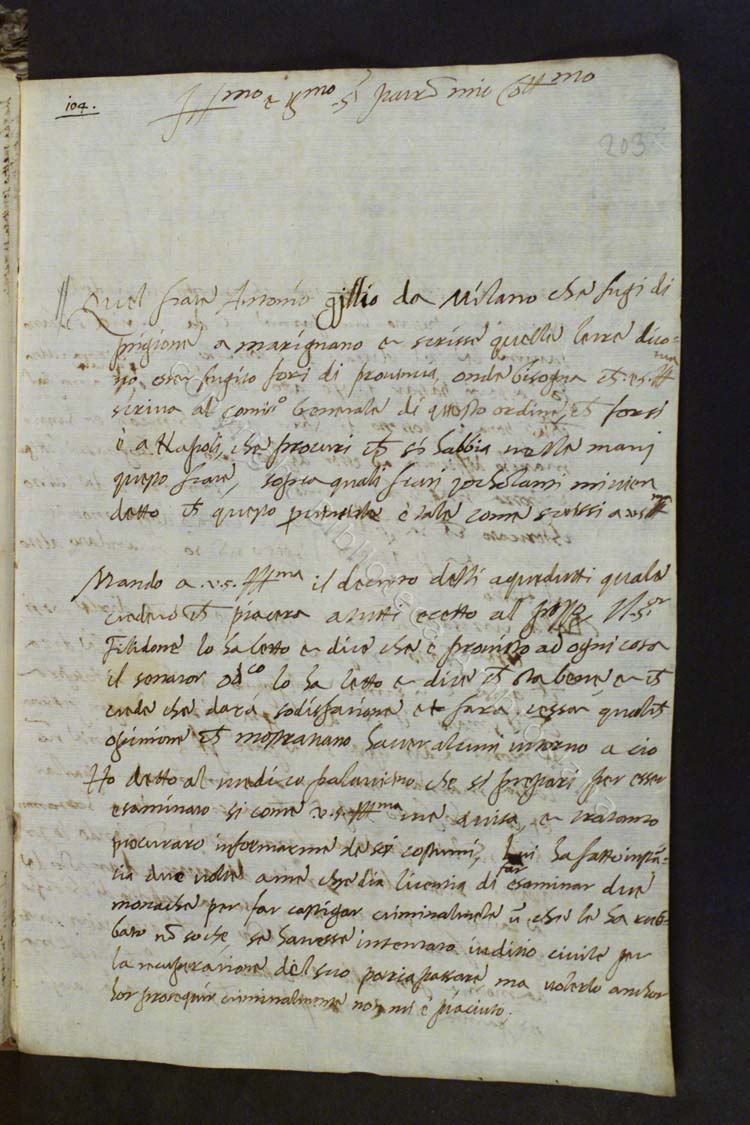 104.
Ill.mo e R.mo S.r patrõ mio Coll.mo
203
Quel frate Antonio gillio da Milano che fugi di
prigione a marignano et scrisse quelle lettere dico-
no esser fugito fori di provincia, onde bisogna ch. v.s. Ill.ma
scriva al comis.o Generale di questo ordine, ch. forsi
è a Napoli, che procuri ch. si habbia nelle mani
questo frate, sopra quali frati zocholanti mi vien
detto ch. questo è tale come scrissi a v.s. Ill.ma
Mando a .v.s. Ill.ma il decreto delli aquedutti quale
credero ch. piacera a tutti ecetto al Il S.or
Filidone lo ha letto e dice che è provisto ad ogni cosa
il senator Od.co lo ha letto e dice ch. sta bene e ch.
crede che dará sodisfatione et fará cessar qualch.
opinione ch. mostravano haver alcuni intorno a cio
Ho detto al medico palavicino che si prepari per esser
esaminato si come v.s. Ill.ma me avisa, e tratanto
procuraro informarme de soi costumi, lui ha fatto instã-
cia due volte a me che dia licentia di far esaminar due
monache per far castigar criminalmẽte ũ che le ha rub-
bato nõ so che, se havesse intentato iuditio civile per
la recuperatione del suo potria passare ma volerlo anchor
hor prosequir criminalmente non mi è piaciuto.